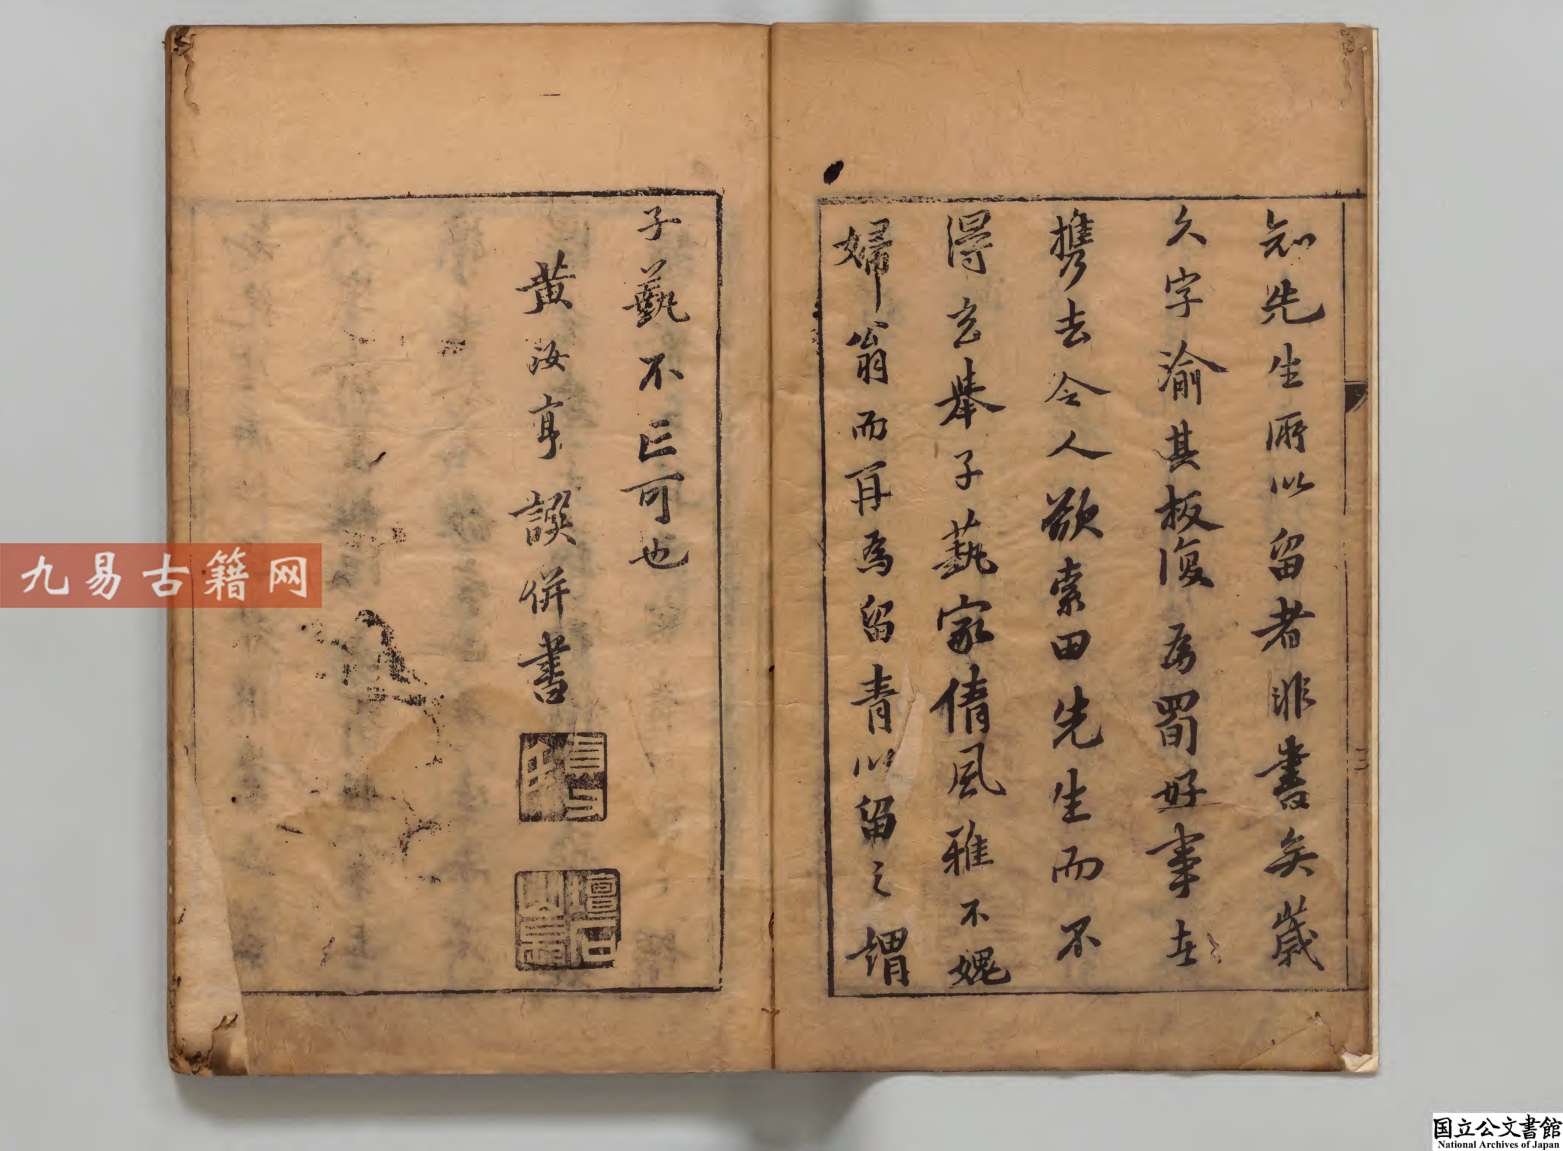 知先生所以留者非書矣歲
久字渝其板復為蜀好事者
攜去令人欲索田先生而不
得玄舉子藝家倩風雅不媿
婦翁而再為留青以留之謂
子藝不亡可也
黄汝亨譔併書
九易古籍网
国立公文書館
National Archives of Japan